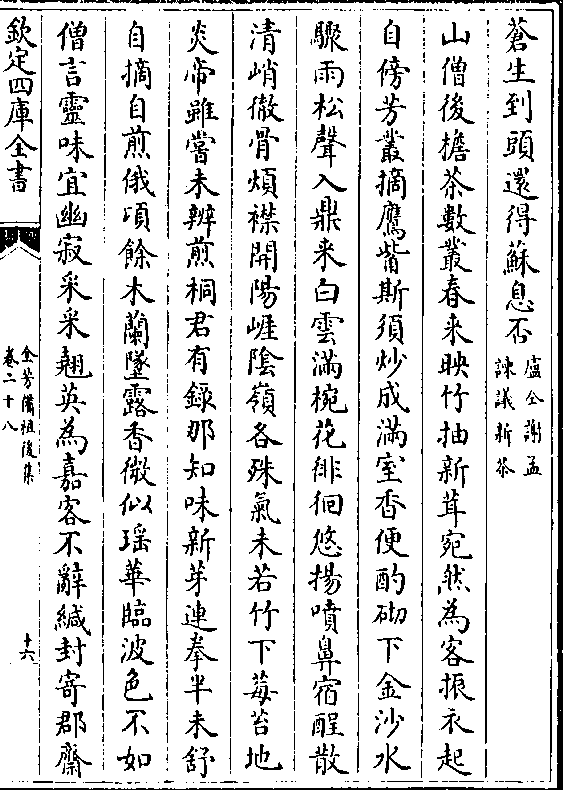 蒼生到頭還得蘇息否盧仝謝孟
諫議新茶
山僧後檐茶數叢春来映竹抽新茸宛然為客振衣起
自傍芳叢摘鷹觜斯須炒成滿室香便酌砌下金沙水
驟雨松聲入鼎来白雲滿椀花徘徊悠揚噴鼻宿酲散
清峭徹骨煩襟開陽崖陰嶺各殊氣未若竹下莓苔地
炎帝雖嘗未辨煎桐君有錄那知味新芽連拳半未舒
自摘自煎俄頃餘木蘭墜露香微似瑶華臨波色不如
僧言靈味宜幽寂采采翹英為嘉客不辭緘封寄郡齋
欽定四庫全書
全芳備祖後集
卷二十八
十六